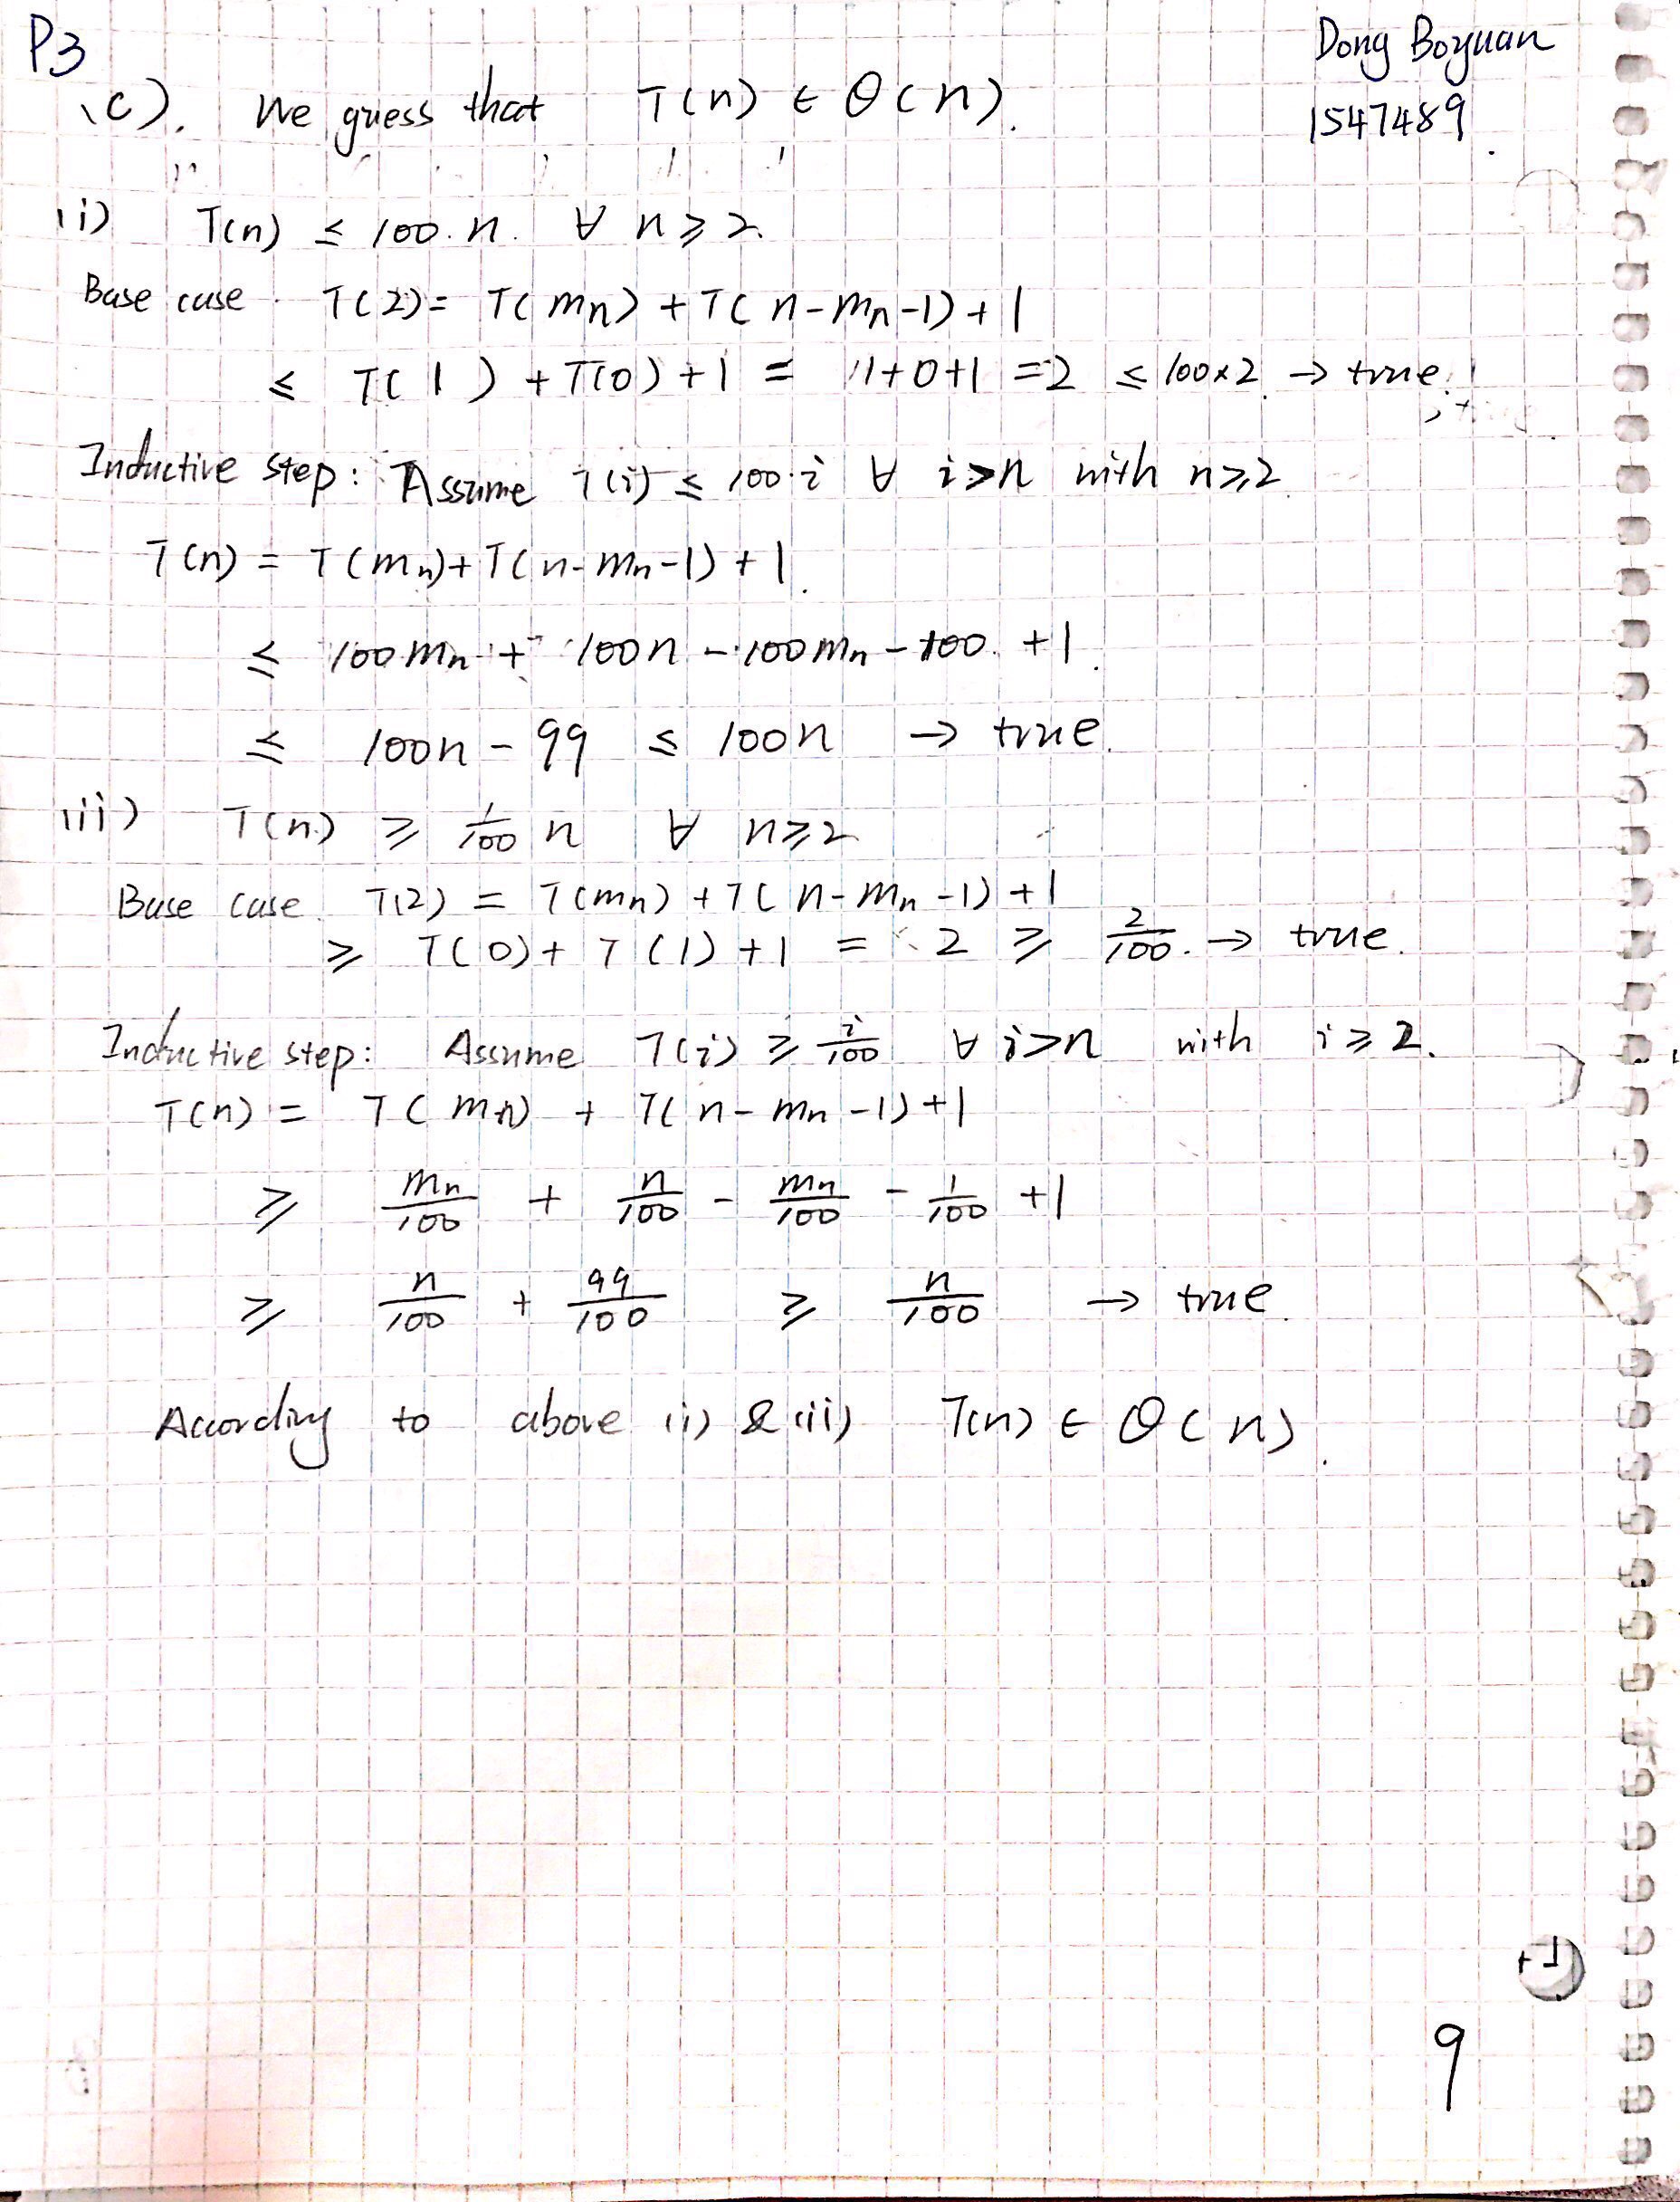 P3
Dong Boyuan
1547489
(c). We guess that T(n) ∈ Θ(n).
(i) T(n) ≤ 100·n. ∀ n ≥ 2.
Base case T(2) = T(mn) + T(n-mn-1) + 1
≤ T(1) + T(0) + 1 = 1+0+1 = 2 ≤ 100×2 → true.
Inductive step: Assume T(i) ≤ 100·i ∀ i>n with n≥2.
T(n) = T(mn) + T(n-mn-1) + 1.
≤ 100mn + 100n - 100mn - 100 + 1.
≤ 100n - 99 ≤ 100n → true.
(ii) T(n) ≥ 1/100 n ∀ n≥2
Base case T(2) = T(mn) + T(n-mn-1) + 1
≥ T(0) + T(1) + 1 = 2 ≥ 2/100. → true.
Inductive step: Assume T(i) ≥ i/100 ∀ i>n with i≥2.
T(n) = T(mn) + T(n-mn-1) + 1
≥ mn/100 + n/100 - mn/100 - 1/100 + 1
≥ n/100 + 99/100 ≥ n/100 → true.
According to above (i) & (ii) T(n) ∈ Θ(n).
+1
9